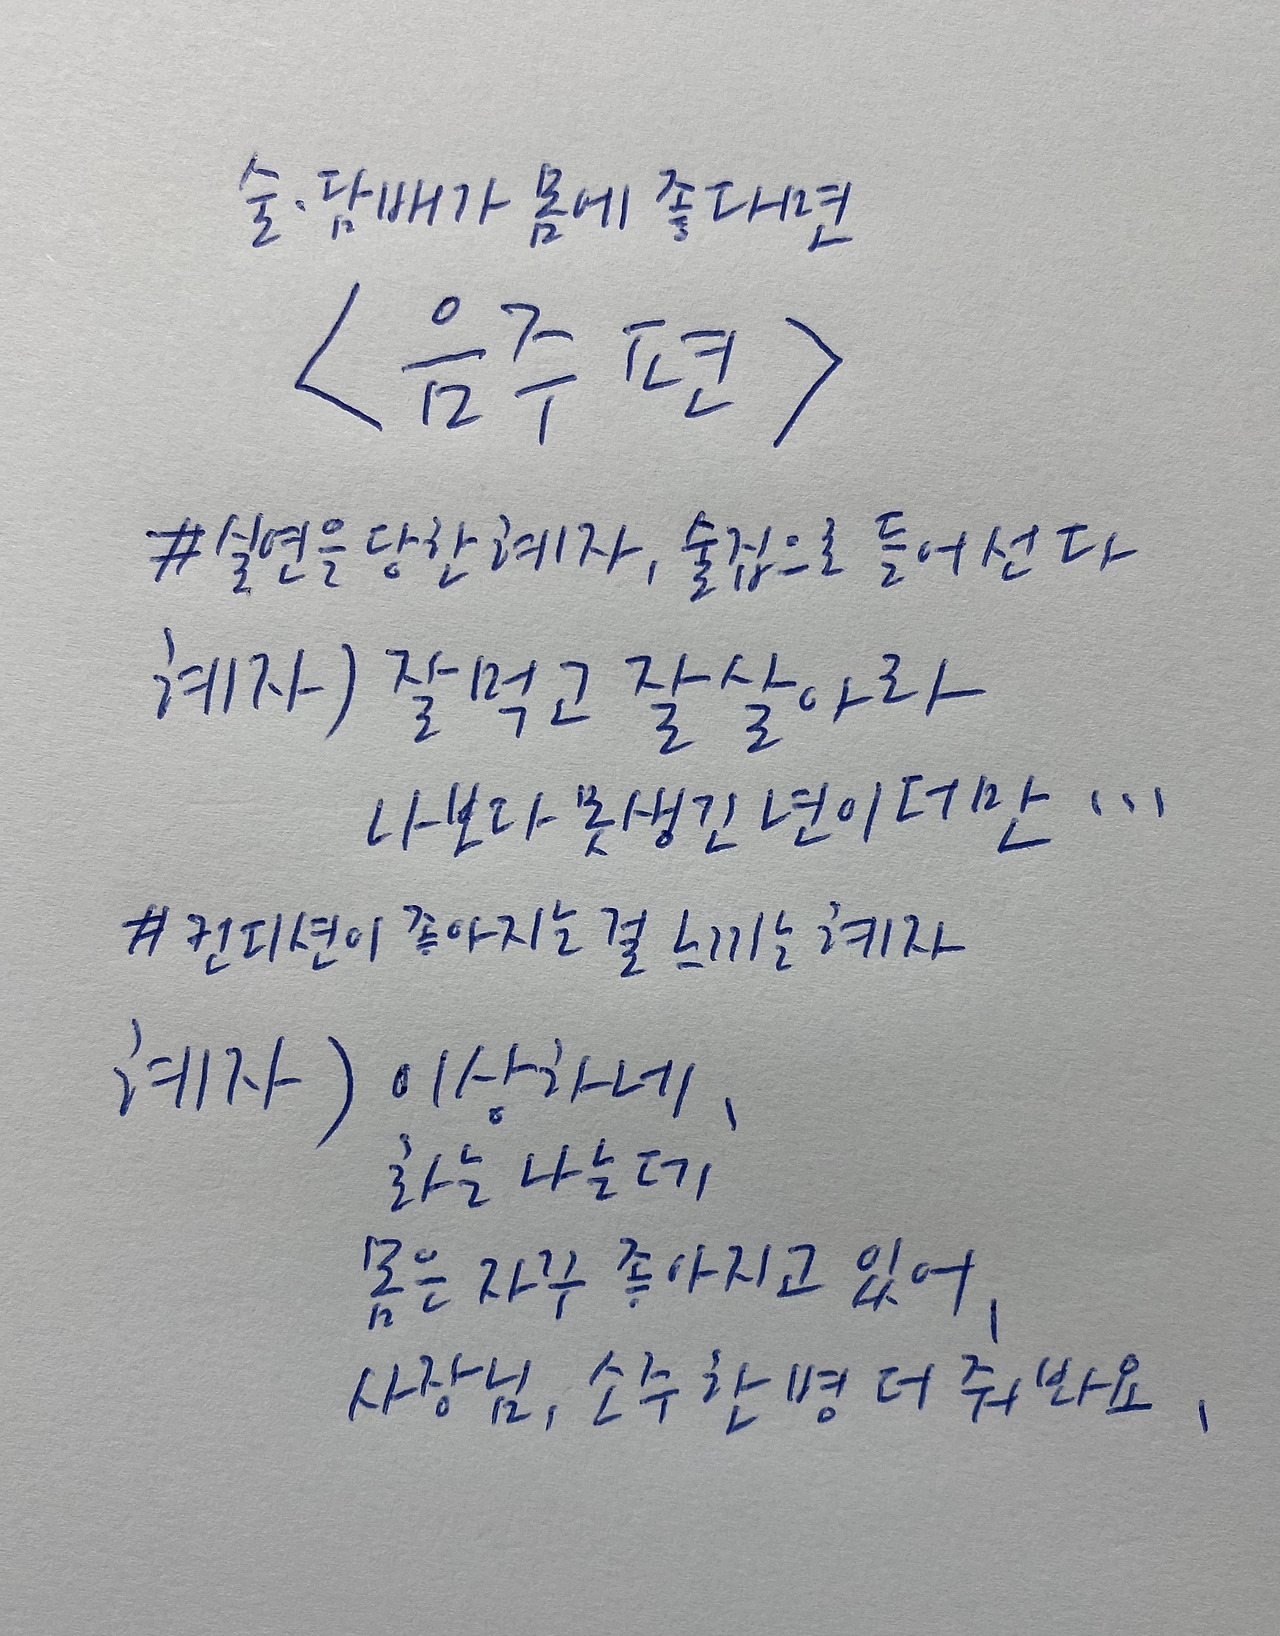 술·담배가 몸에 좋다면
<음주 편>
#실연을 당한 혜자, 술집으로 들어선다
혜자) 잘 먹고 잘 살아라
나보다 못생긴 년이더만...
#컨디션이 좋아지는 걸 느끼는 혜자
혜자) 이상하네,
화는 나는데
몸은 자꾸 좋아지고 있어,
사장님, 소주 한 병 더 줘 봐요,